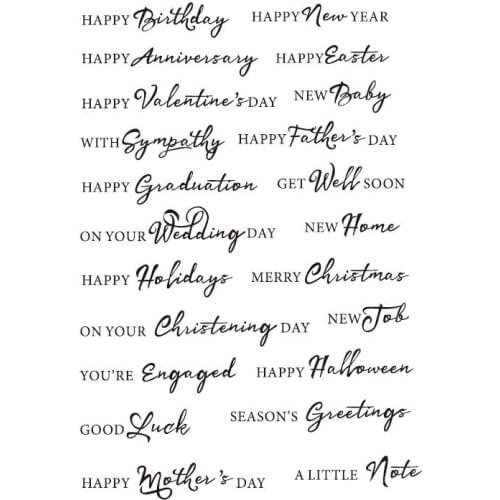 HAPPY Birthday HAPPY New YEAR
HAPPY Anniversary HAPPY Easter
HAPPY Valentine's DAY NEW Baby
WITH Sympathy HAPPY Father's DAY
HAPPY Graduation GET Well SOON
ON YOUR Wedding DAY NEW Home
HAPPY Holidays MERRY Christmas
ON YOUR Christening DAY NEW Job
YOU'RE Engaged HAPPY Halloween
GOOD Luck SEASON'S Greetings
HAPPY Mother's DAY A LITTLE Note